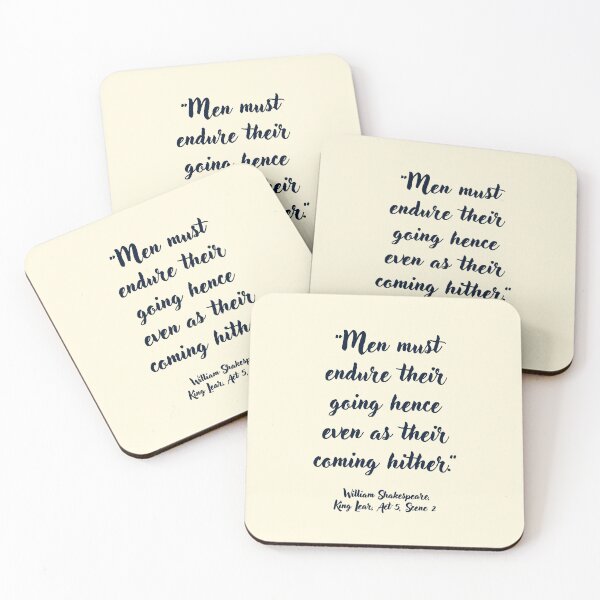 "Men must
endure their
going hence
"Men must
endure their
going hence
even as their
coming hither."
"Men must
endure their
going hence
even as their
coming
William
King Lear, Act 5,
"Men must
endure their
going hence
even as their
coming hither."
William Shakespeare,
King Lear, Act 5, Scene 2